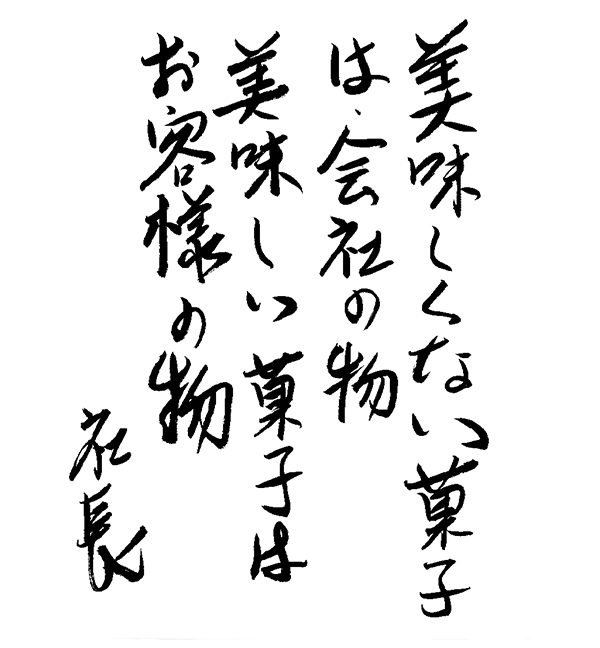 美味しくない菓子
は、会社の物
美味しい菓子は
お客様の物
社長